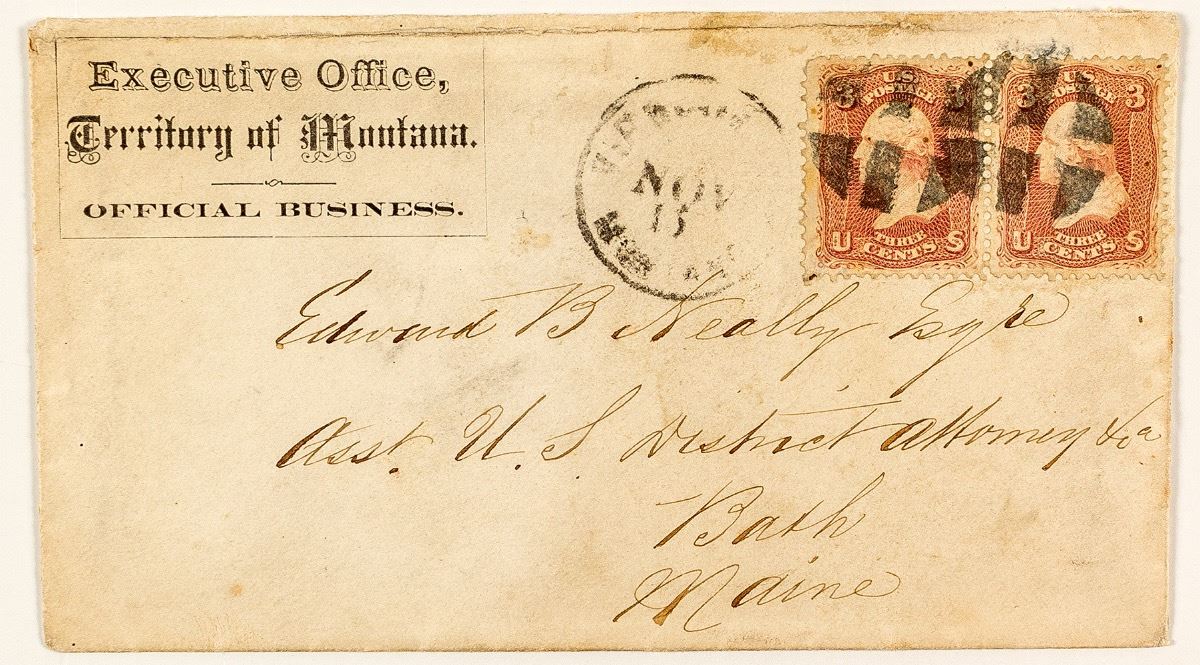 Executive Office,
Territory of Montana.
OFFICIAL BUSINESS.
NOV
U.S.
POSTAGE
3 3
THREE
U CENTS S
U.S.
POSTAGE
3 3
THREE
U CENTS S
Edward B Neally Esqre
Asst. U. S District Attorney &ca
Bath
Maine